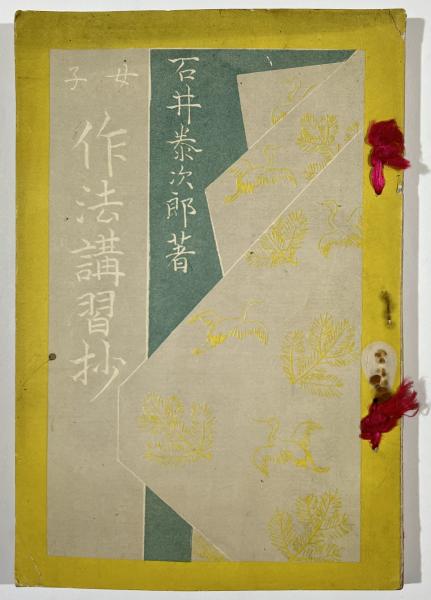 石井泰次郎著
女子
作法講習抄